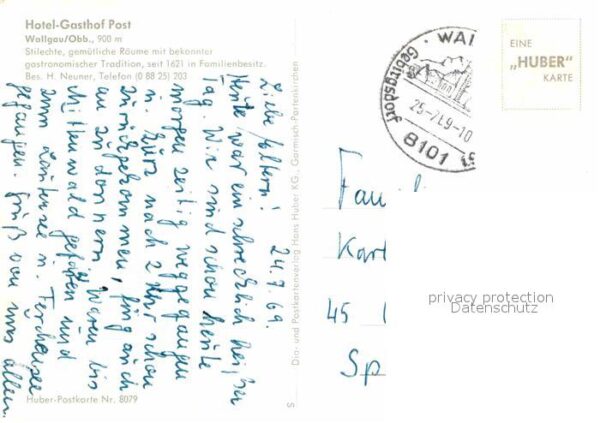 Hotel-Gasthof Post
Wallgau/Obb., 900 m
Stilechte, gemütliche Räume mit bekannter
gastronomischer Tradition, seit 1621 in Familienbesitz.
Bes. H. Neuner, Telefon (0 88 25) 203
24.7.69.
Liebe Eltern!
Heute war ein schrecklich heißer
Tag. Wir sind schon heute
morgen zeitig weggegangen
u. kurz nach 2 Uhr schon
zurückgekommen, fing auch
an zu donnern. Waren bis
Mittenwald gefahren und
zum Lautersee u. Ferchensee
gegangen. Gruß von uns allen.
Huber-Postkarte Nr. 8079
Dia- und Postkartenverlag Hans Huber KG., Garmisch-Partenkirchen
S
WAL
Gebirgsdorf
25-7.69-10
8101
EINE
„HUBER"
KARTE
Fami
Kart
45
Sp
privacy protection
Datenschutz